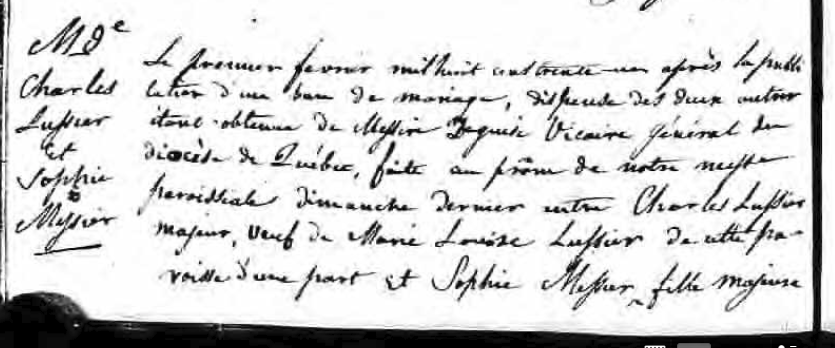 M d^e
Charles
Lussier
et
Sophie
Messier
Le premier fevrier mil huit cent trente un après la publi
cation d'un ban de mariage, dispense des deux autres
étant obtenue de Messire Deguise Vicaire général du
diocèse de Québec, faite au prône de notre messe
paroissiale dimanche dernier entre Charles Lussier
majeur, veuf de Marie Louise Lussier de cette pa-
roisse d'une part et Sophie Messier fille majeure